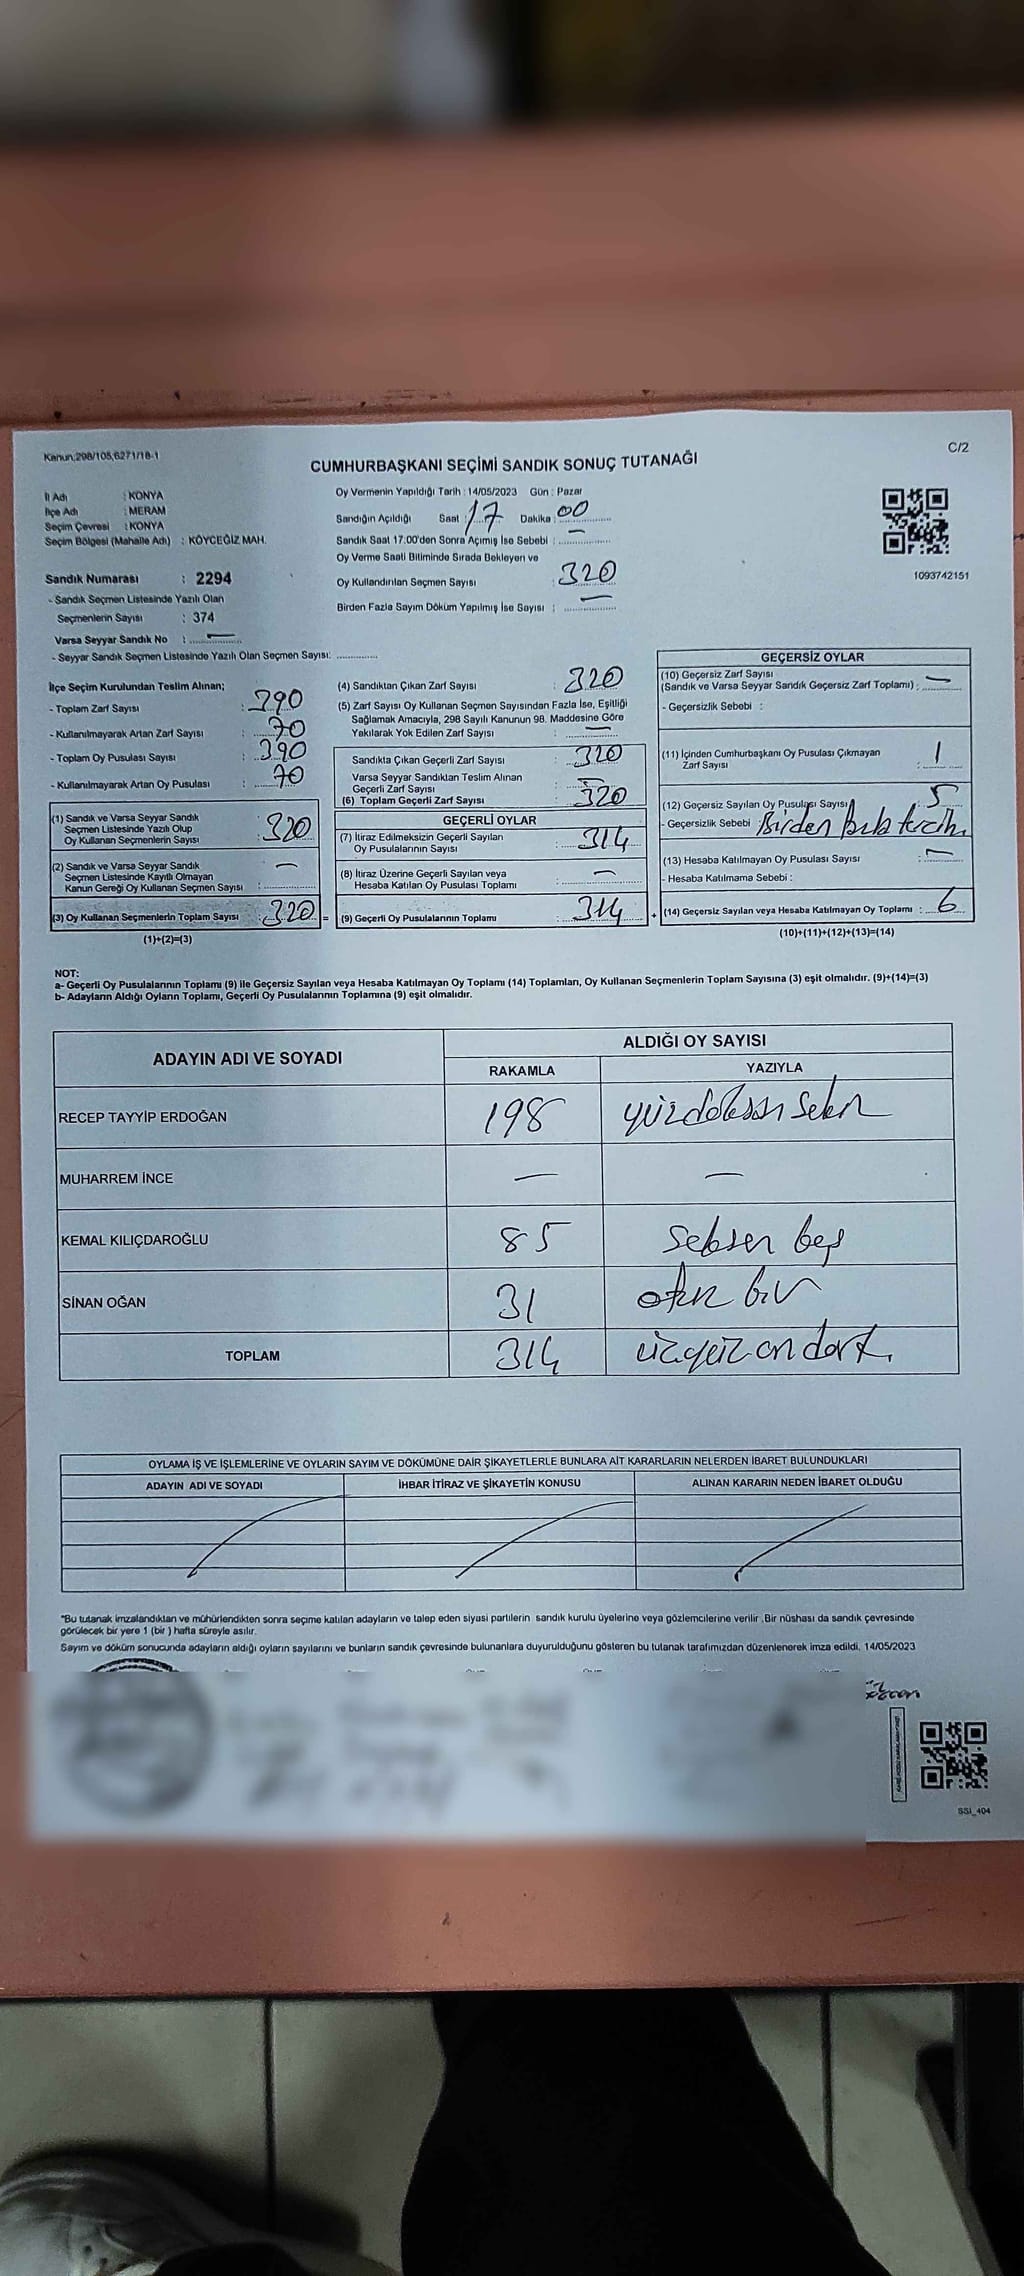 Kanun;298/105;6271/18-1
C/2
CUMHURBAŞKANI SEÇİMİ SANDIK SONUÇ TUTANAĞI
İl Adı : KONYA
İlçe Adı : MERAM
Seçim Çevresi : KONYA
Seçim Bölgesi (Mahalle Adı) : KÖYCEĞİZ MAH.
Oy Vermenin Yapıldığı Tarih : 14/05/2023 Gün : Pazar
Sandığın Açıldığı Saat : 17 Dakika : 00
Sandık Saat 17:00'den Sonra Açımış İse Sebebi : —
Oy Verme Saati Bitiminde Sırada Bekleyen ve
Oy Kullandırılan Seçmen Sayısı : 320
Birden Fazla Sayım Döküm Yapılmış İse Sayısı : —
1093742151
Sandık Numarası : 2294
- Sandık Seçmen Listesinde Yazılı Olan
Seçmenlerin Sayısı : 374
Varsa Seyyar Sandık No : —
- Seyyar Sandık Seçmen Listesinde Yazılı Olan Seçmen Sayısı:
İlçe Seçim Kurulundan Teslim Alınan;
- Toplam Zarf Sayısı : 390
- Kullanılmayarak Artan Zarf Sayısı : 70
- Toplam Oy Pusulası Sayısı : 390
- Kullanılmayarak Artan Oy Pusulası : 70
(1) Sandık ve Varsa Seyyar Sandık
Seçmen Listesinde Yazılı Olup
Oy Kullanan Seçmenlerin Sayısı : 320
(2) Sandık ve Varsa Seyyar Sandık
Seçmen Listesinde Kayıtlı Olmayan
Kanun Gereği Oy Kullanan Seçmen Sayısı : —
(3) Oy Kullanan Seçmenlerin Toplam Sayısı : 320 =
(1)+(2)=(3)
(4) Sandıktan Çıkan Zarf Sayısı : 320
(5) Zarf Sayısı Oy Kullanan Seçmen Sayısından Fazla İse, Eşitliği
Sağlamak Amacıyla, 298 Sayılı Kanunun 98. Maddesine Göre
Yakılarak Yok Edilen Zarf Sayısı : —
Sandıkta Çıkan Geçerli Zarf Sayısı : 320
Varsa Seyyar Sandıktan Teslim Alınan
Geçerli Zarf Sayısı : —
(6) Toplam Geçerli Zarf Sayısı : 320
GEÇERLİ OYLAR
(7) İtiraz Edilmeksizin Geçerli Sayılan
Oy Pusulalarının Sayısı : 314
(8) İtiraz Üzerine Geçerli Sayılan veya
Hesaba Katılan Oy Pusulası Toplamı : —
(9) Geçerli Oy Pusulalarının Toplamı : 314 +
GEÇERSİZ OYLAR
(10) Geçersiz Zarf Sayısı
(Sandık ve Varsa Seyyar Sandık Geçersiz Zarf Toplamı) : —
- Geçersizlik Sebebi :
(11) İçinden Cumhurbaşkanı Oy Pusulası Çıkmayan
Zarf Sayısı : 1
(12) Geçersiz Sayılan Oy Pusulası Sayısı : 5
- Geçersizlik Sebebi : Birden tercih.
(13) Hesaba Katılmayan Oy Pusulası Sayısı : —
- Hesaba Katılmama Sebebi :
(14) Geçersiz Sayılan veya Hesaba Katılmayan Oy Toplamı : 6
(10)+(11)+(12)+(13)=(14)
NOT:
a- Geçerli Oy Pusulalarının Toplamı (9) ile Geçersiz Sayılan veya Hesaba Katılmayan Oy Toplamı (14) Toplamları, Oy Kullanan Seçmenlerin Toplam Sayısına (3) eşit olmalıdır. (9)+(14)=(3)
b- Adayların Aldığı Oyların Toplamı, Geçerli Oy Pusulalarının Toplamına (9) eşit olmalıdır.
ADAYIN ADI VE SOYADI
ALDIĞI OY SAYISI
RAKAMLA YAZIYLA
RECEP TAYYİP ERDOĞAN 198 yüzdoksan sekiz
MUHARREM İNCE — —
KEMAL KILIÇDAROĞLU 85 seksen beş
SİNAN OĞAN 31 otuz bir
TOPLAM 314 üçyüz on dört.
OYLAMA İŞ VE İŞLEMLERİNE VE OYLARIN SAYIM VE DÖKÜMÜNE DAİR ŞİKAYETLERLE BUNLARA AİT KARARLARIN NELERDEN İBARET BULUNDUKLARI
ADAYIN ADI VE SOYADI İHBAR İTİRAZ VE ŞİKAYETİN KONUSU ALINAN KARARIN NEDEN İBARET OLDUĞU
*Bu tutanak imzalandıktan ve mühürlendikten sonra seçime katılan adayların ve talep eden siyasi partilerin sandık kurulu üyelerine veya gözlemcilerine verilir .Bir nüshası da sandık çevresinde
görülecek bir yere 1 (bir ) hafta süreyle asılır.
Sayım ve döküm sonucunda adayların aldığı oyların sayılarını ve bunların sandık çevresinde bulunanlara duyurulduğunu gösteren bu tutanak tarafımızdan düzenlenerek imza edildi. 14/05/2023
SSI_404